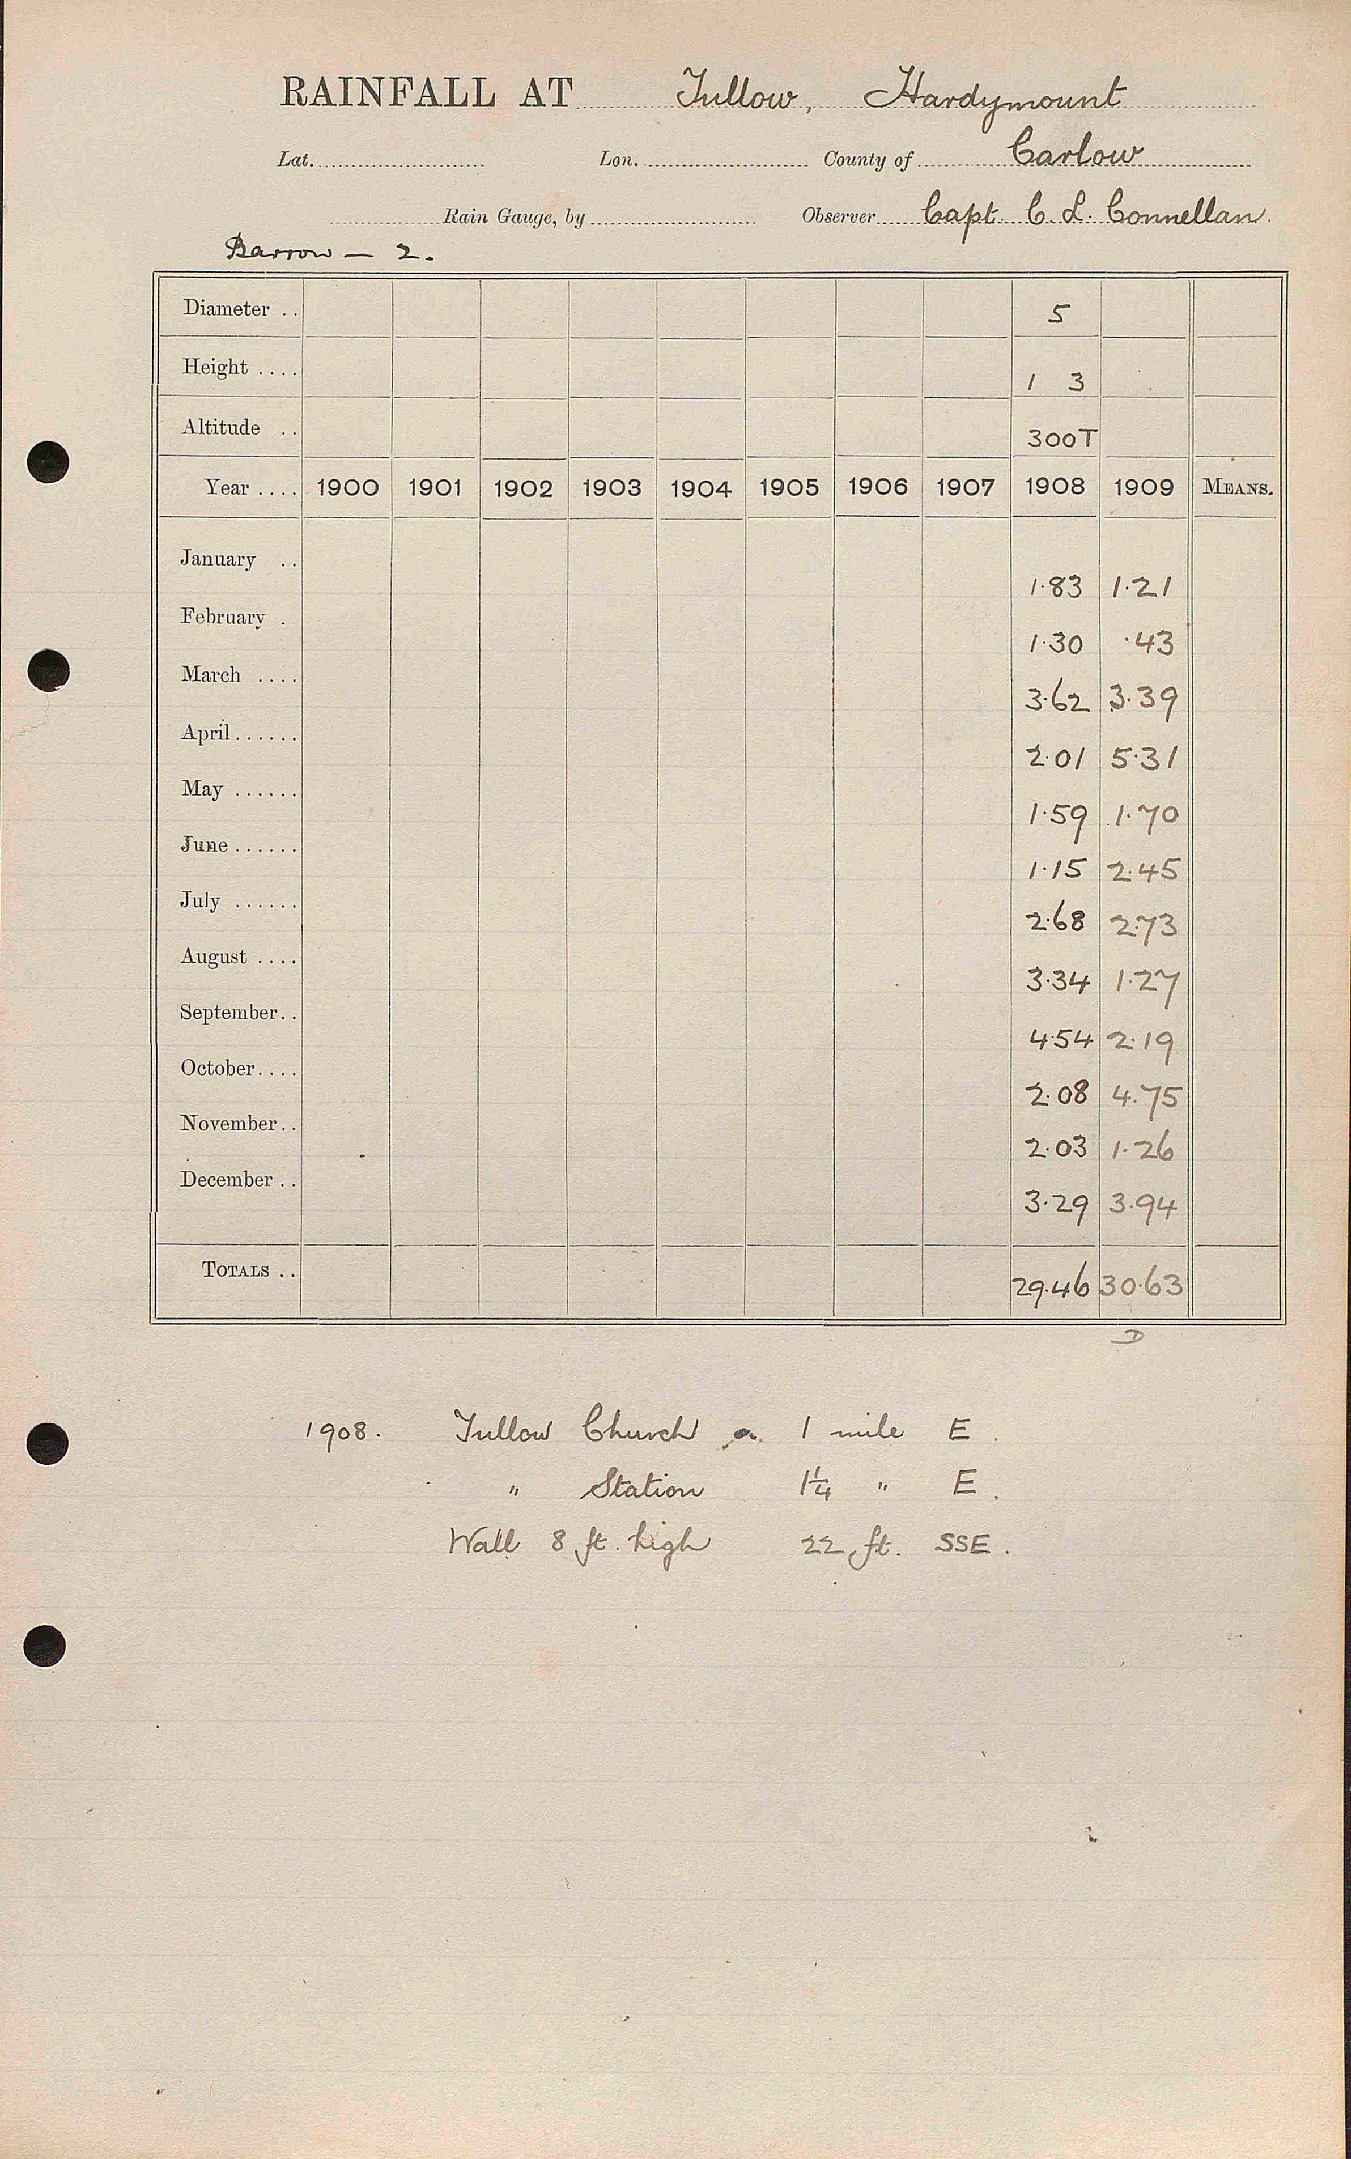 RAINFALL AT Tullow, Hardymount
Lat. Lon. County of Carlow
Rain Gauge, by Observer Capt. C. L. Connellan.
Barrow — 2.
Diameter .. 5
Height .... 1 3
Altitude .. 300T
Year .... 1900 1901 1902 1903 1904 1905 1906 1907 1908 1909 MEANS.
January .. 1.83 1.21
February . 1.30 .43
March .... 3.62 3.39
April...... 2.01 5.31
May ...... 1.59 1.70
June...... 1.15 2.45
July ...... 2.68 2.73
August .... 3.34 1.27
September.. 4.54 2.19
October.... 2.08 4.75
November.. 2.03 1.26
December.. 3.29 3.94
TOTALS .. 29.46 30.63
D
1908. Tullow Church 1 mile E.
" Station 1¼ " E.
Wall 8 ft. high 22 ft. SSE.